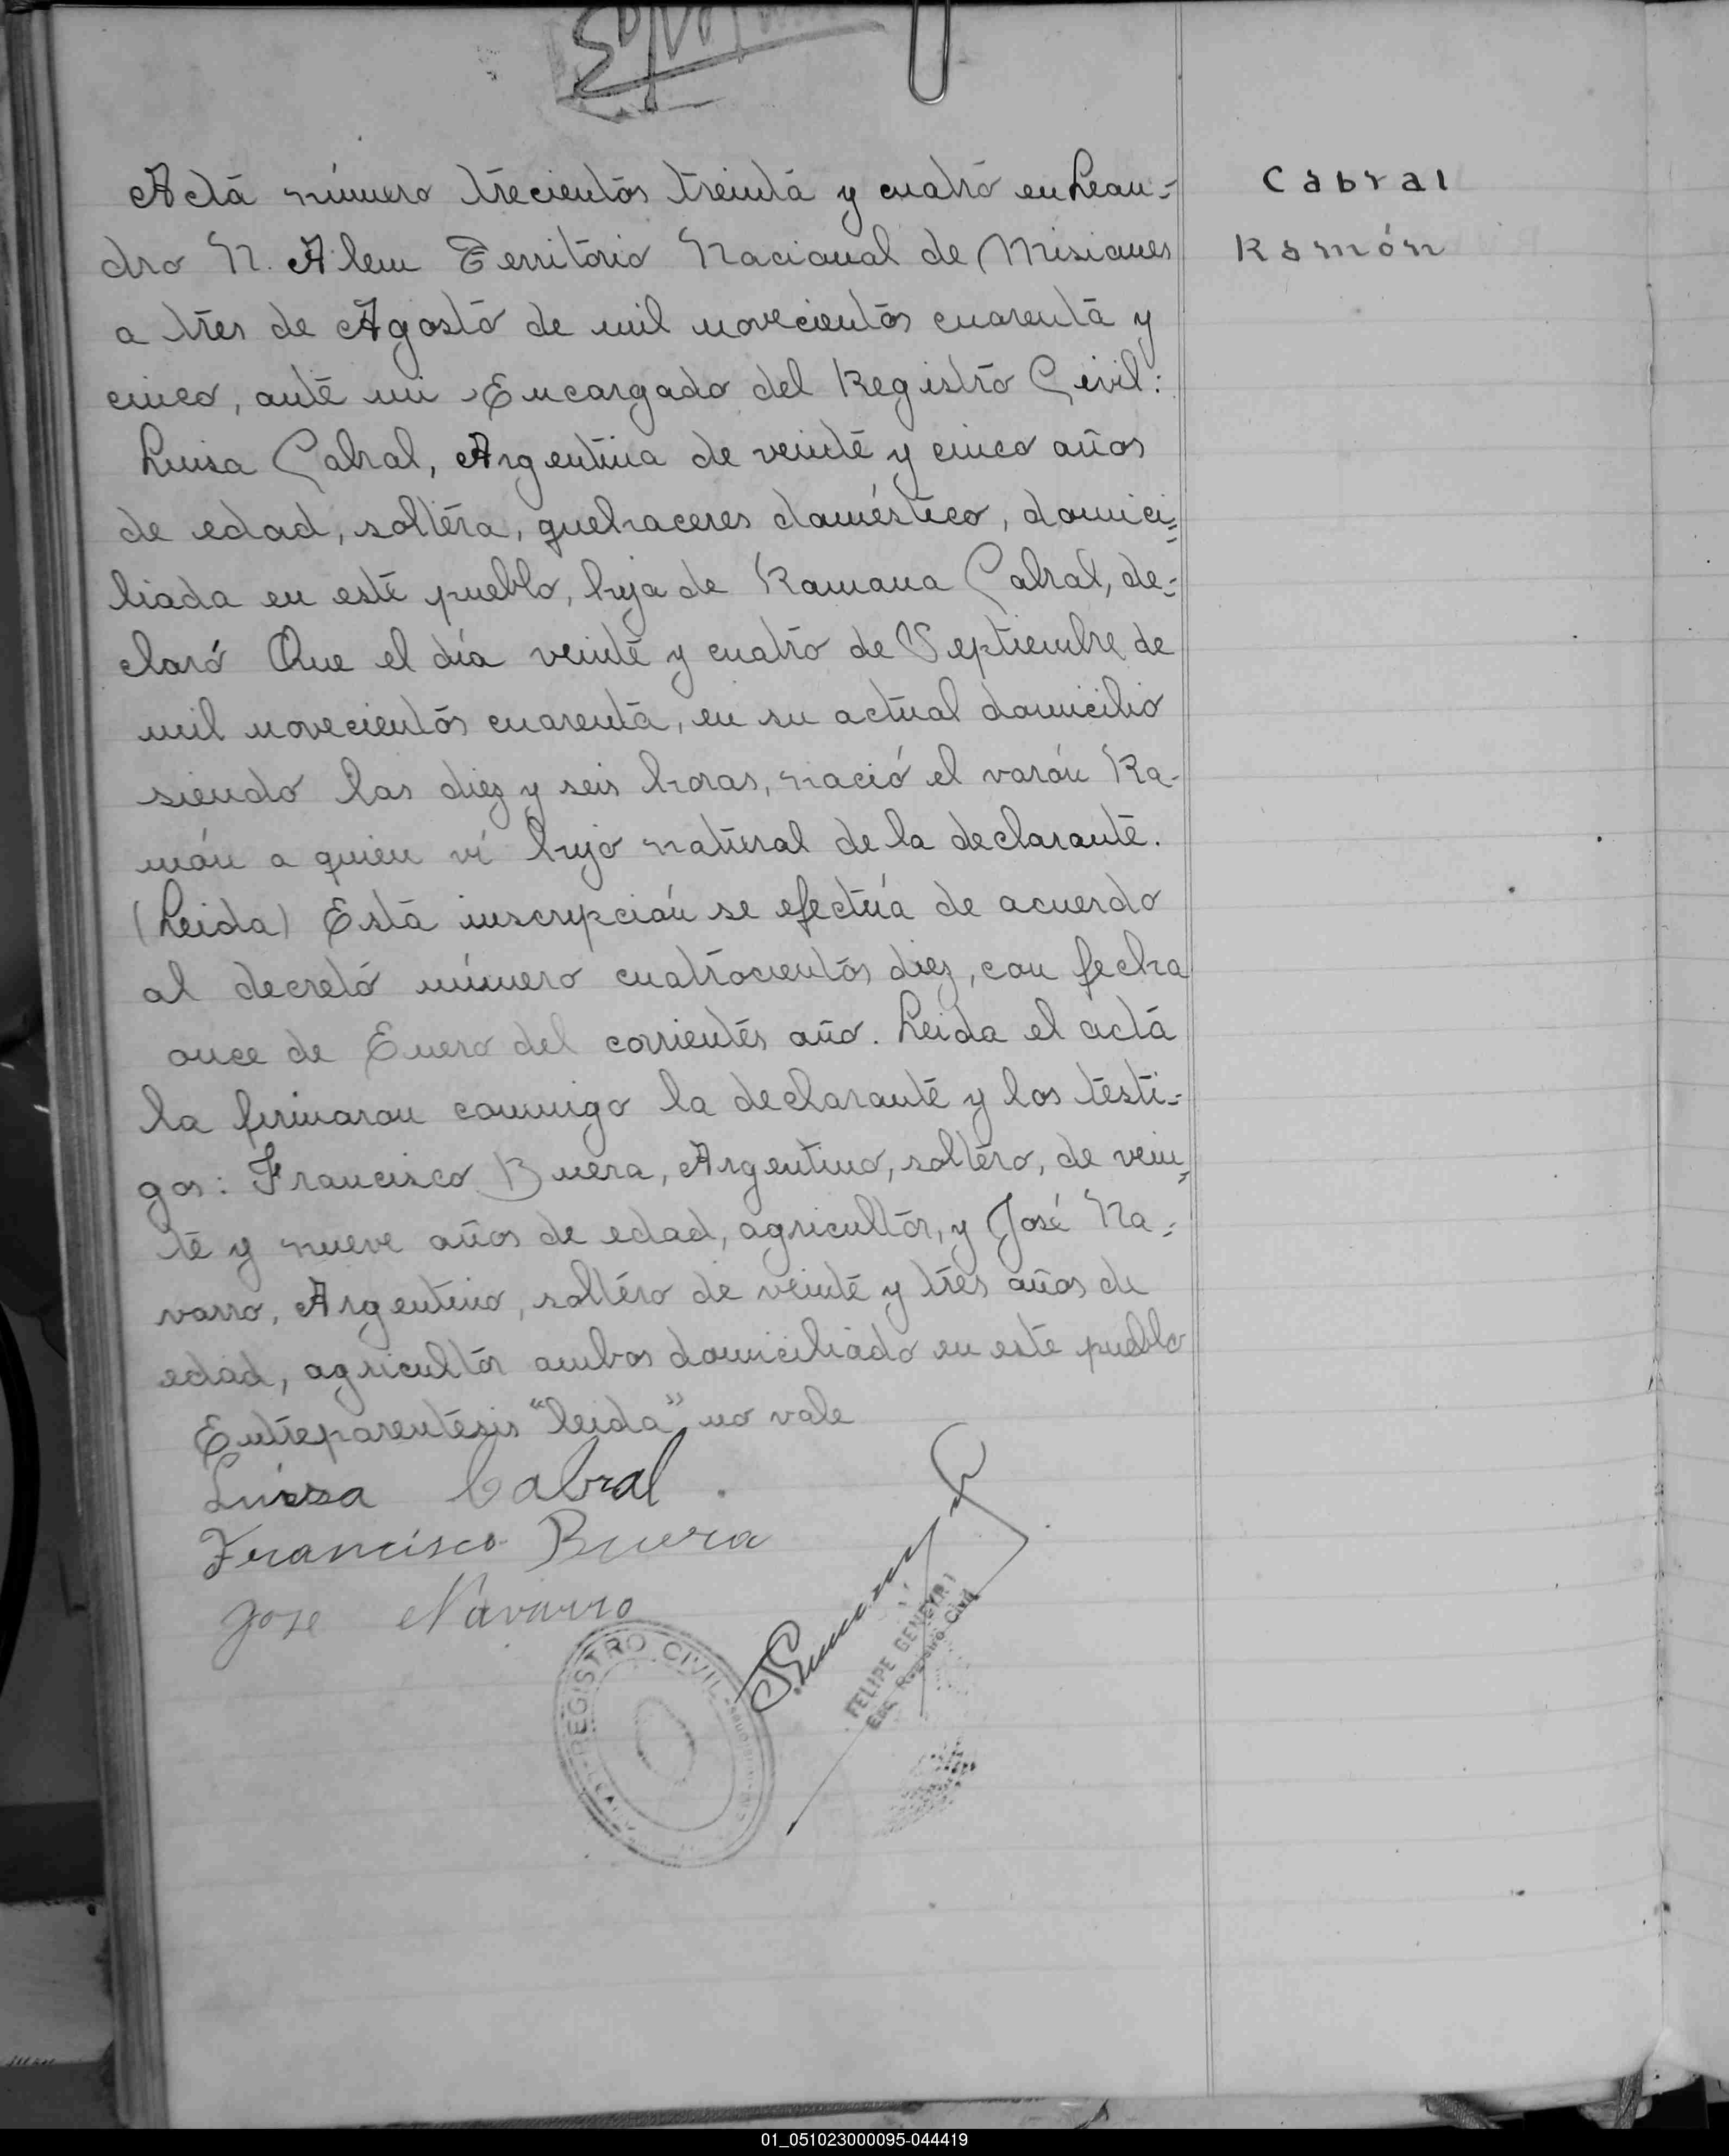 Acta número trecientos treinta y cuatro en Lean=
dro N. Alem Territorio Nacional de Misiones
a tres de Agosto de mil novecientos cuarenta y
cinco, ante mi Encargado del Registro Civil:
Luisa Cabral, Argentina de veinte y cinco años
de edad, soltera, quehaceres doméstico, domici=
liada en este pueblo, hija de Ramona Cabral, de=
claró Que el día veinte y cuatro de Septiembre de
mil novecientos cuarenta, en su actual domicilio
siendo las diez y seis horas, nació el varón Ra-
món a quien ví hijo natural de la declarante.
(Leida) Esta inscripción se efectúa de acuerdo
al decreto número cuatrocientos diez, con fecha
once de Enero del corrientes año. Leida el acta
la firmaron conmigo la declarante y los testi=
gos: Francisco Buera, Argentino, soltero, de vein=
te y nueve años de edad, agricultor, y José Na=
varro, Argentino, soltero de veinte y tres años de
edad, agricultor ambos domiciliado en este pueblo
Entreparentesis "leida" no vale
Luisa Cabral.
Francisco Buera
Jose Navarro
REGISTRO CIVIL
FELIPE GENEYRI
Enc. Registro Civil
Cabral
Ramón
01_051023000095-044419